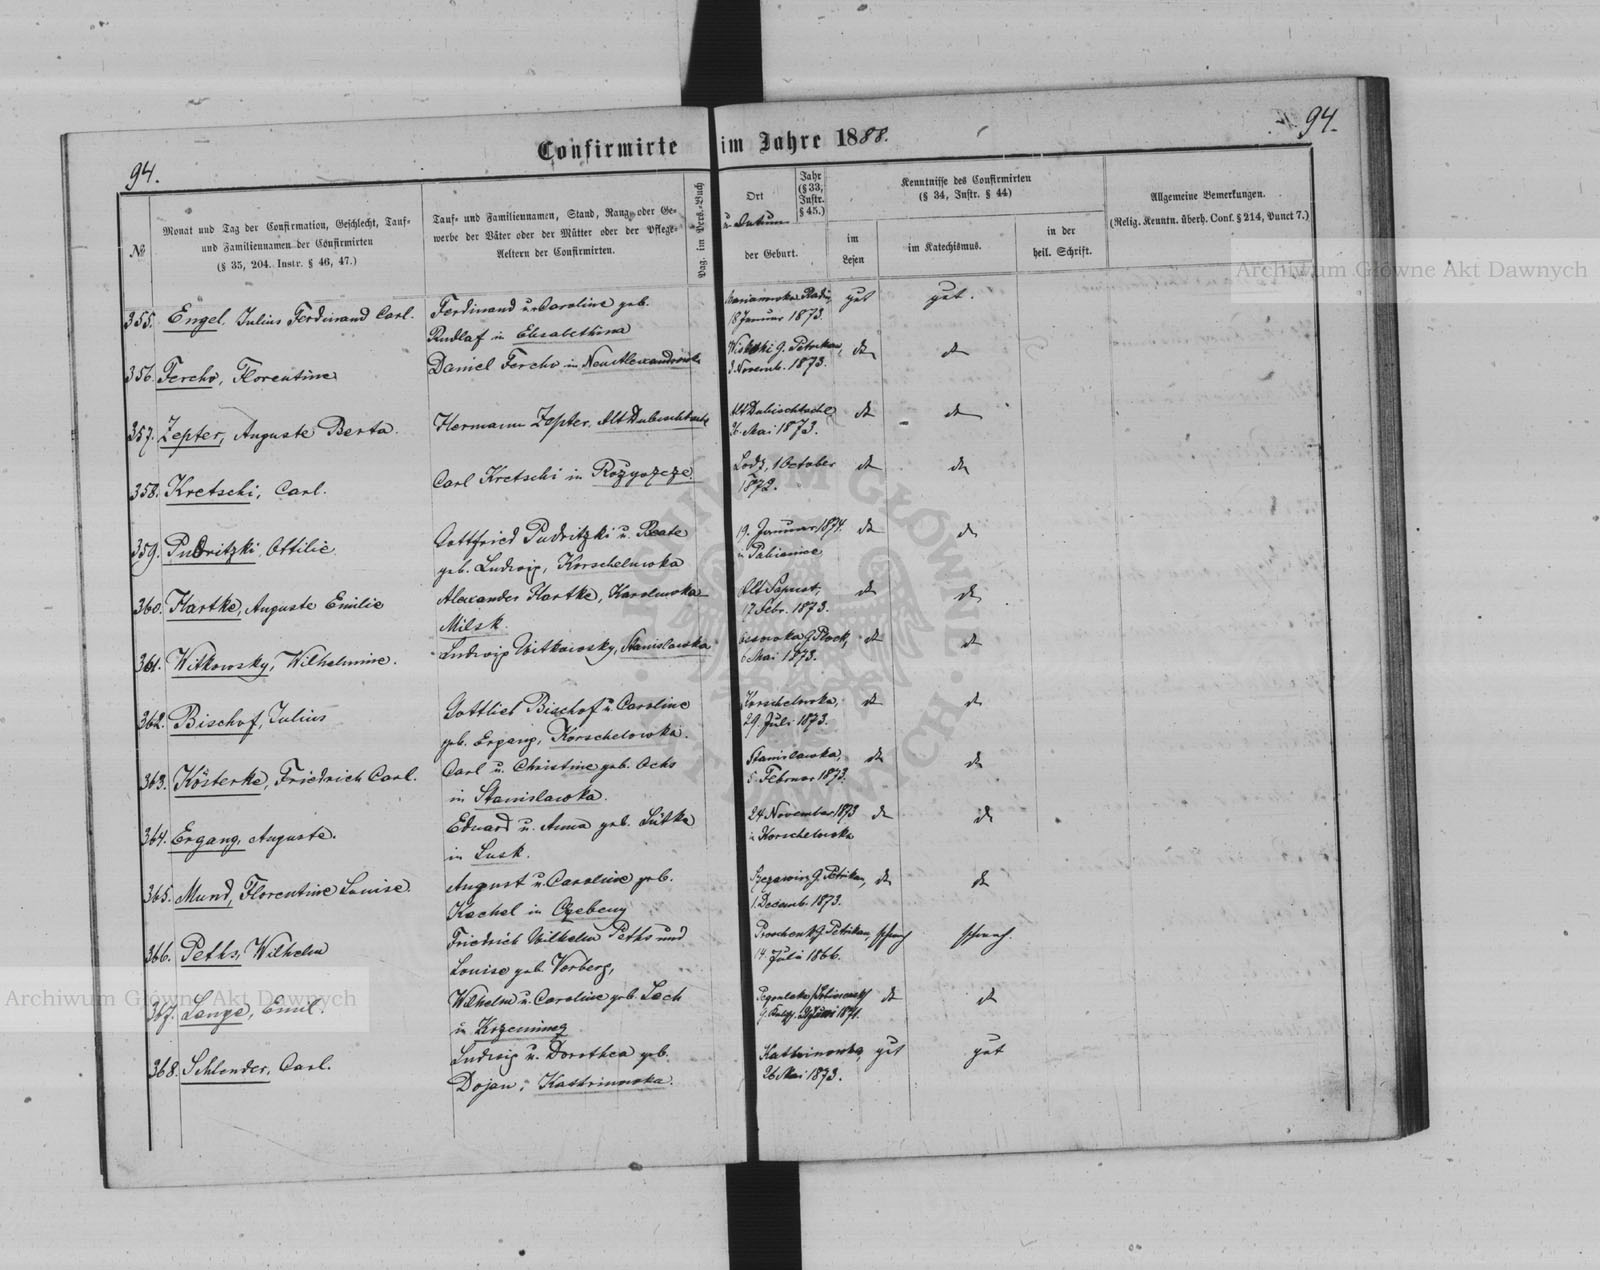 94.
Confirmirte im Jahre 1888.
94.
№
Monat und Tag der Confirmation, Geschlecht, Tauf-
und Familiennamen der Confirmirten
(§ 35, 204. Instr. § 46, 47.)
Tauf- und Familiennamen, Stand, Rang oder Ge-
werbe der Väter oder der Mütter oder der Pflege-
Aeltern der Confirmirten.
Pag. im Pers.-Buch
Ort
u. Datum
der Geburt.
Jahr
(§ 33,
Instr.
§ 45.)
Kenntnisse des Confirmirten
(§ 34, Instr. § 44)
im
Lesen
im Katechismus.
in der
heil. Schrift.
Allgemeine Bemerkungen.
(Relig. Kenntn. überh. Conf. § 214, Punct 7.)
Archiwum Główne Akt Dawnych
355. Engel, Julius Ferdinand Carl.
Ferdinand u. Caroline geb.
Rudlaf in Elisabethina
18 Januar 1873.
gut gut.
356. Fercho, Florentine
Daniel Fercho in
G. Petrikau,
3. Novemb. 1873.
do do
357. Zepter, Auguste Berta.
Hermann Zepter.
26. Mai 1873.
do do
358. Kretschi, Carl.
Carl Kretschi in Rożyszcze.
Lodz, 1 October
1872.
do do
359. Pudritzki, Ottilie
Gottfried Pudritzki u. Beate
geb. Ludwig, Korschelowka
19. Januar 1874.
in Pabianice
do do
360. Hartke, Auguste Emilie
Alexander Hartke, Karolowka
Milsk.
17 Febr. 1873.
do do
361. Witkowsky, Wilhelmine.
Ludwig Witkowsky, Stanislawka
G. Plock,
6 Mai 1873.
do do
362. Bischof, Julius
Gottlieb Bischof u. Caroline
geb. Ergang, Korschelowka.
Korschelowka,
29. Juli 1873.
do do
363. Kösterke, Friedrich Carl.
Carl u. Christine geb. Ochs
in Stanislawka.
Stanislawka,
5. Februar 1873.
do do
364. Ergang, Auguste.
Eduard u. Anna geb. Lütke
in Lusk.
24 November 1873
in Korschelowka
do do
365. Mund, Florentine Louise.
August u. Caroline geb.
Kachel in
G. Petrikau,
1. Decemb. 1873.
do do
366. Peths, Wilhelm
Friedrich Wilhelm Peths und
Louise geb. Vorberg,
G. Petrikau,
14. Juli 1866.
schwach schwach.
Archiwum Główne Akt Dawnych
367. Lange, Emil.
Wilhelm u. Caroline geb. Lach
in
1871.
do do
368. Schlender, Carl.
Ludwig u. Dorothea geb.
Dojan, Kathrinowka.
Kathrinowka,
26 Mai 1873.
gut gut